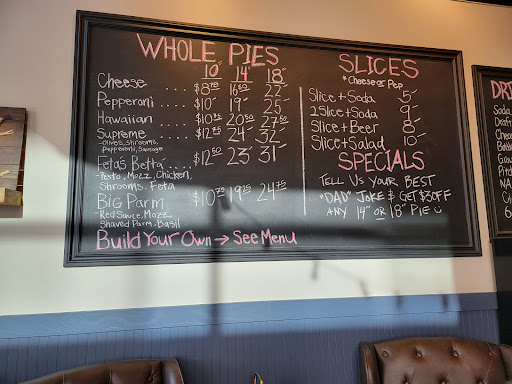 WHOLE PIES
10" 14" 18"
Cheese .... $8 75 16 50 22-
Pepperoni .... $10- 19- 25-
Hawaiian .... 20 50 27 50
Supreme .... $12 25 24- 32-
-olives, Shrooms,
Pepperoni, Sausage
Feta's Betta .... $12 50 23- 31-
-Pesto, Mozz, Chicken,
Shrooms, Feta
Big Parm $10 75 19 25 24 75
-Red Sauce, Mozz,
Shaved Parm, Basil
Build Your Own → See Menu
SLICES
*Cheese or Pep
Slice + Soda 5-
2 Slice + Soda 9-
Slice + Beer 8-
Slice + Salad 10-
SPECIALS
Tell Us Your BEST
"DAD" Joke & Get $3 OFF
ANY 14" OR 18" PIE